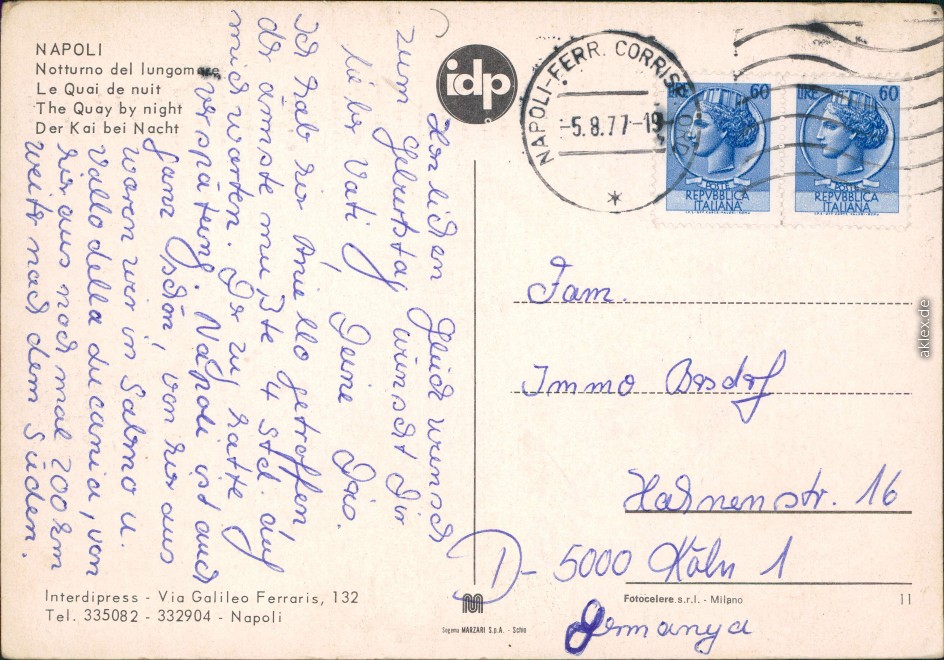 NAPOLI
Notturno del lungomare
Le Quai de nuit
The Quay by night
Der Kai bei Nacht
idp
NAPOLI-FERR. CORRISP.
-5.8.77-19
LIRE 60
POSTE
REPVBBLICA
ITALIANA
LIRE 60
POSTE
REPVBBLICA
ITALIANA
Herzlichen Glückwunsch
zum Geburtstag wünscht Dir
lieber Vati, Deine
Ich hab hier Aniello getroffen,
der ärmste mußte 4 Std. auf
mich warten. Der Zug hatte
Verspätung. Napoli ist auch
ganz schön, von hier aus
waren wir in u.
Vallo della Lucania, von
hier aus noch mal 200 km
weiter nach dem Süden.
Fam.
Immo
Hahnenstr. 16
D-5000 Köln 1
Germanya
Interdipress - Via Galileo Ferraris, 132
Tel. 335082 - 332904 - Napoli
Segema MARZARI S.p.A. - Schio
Fotocelere s.r.l. - Milano
11
aklex.de